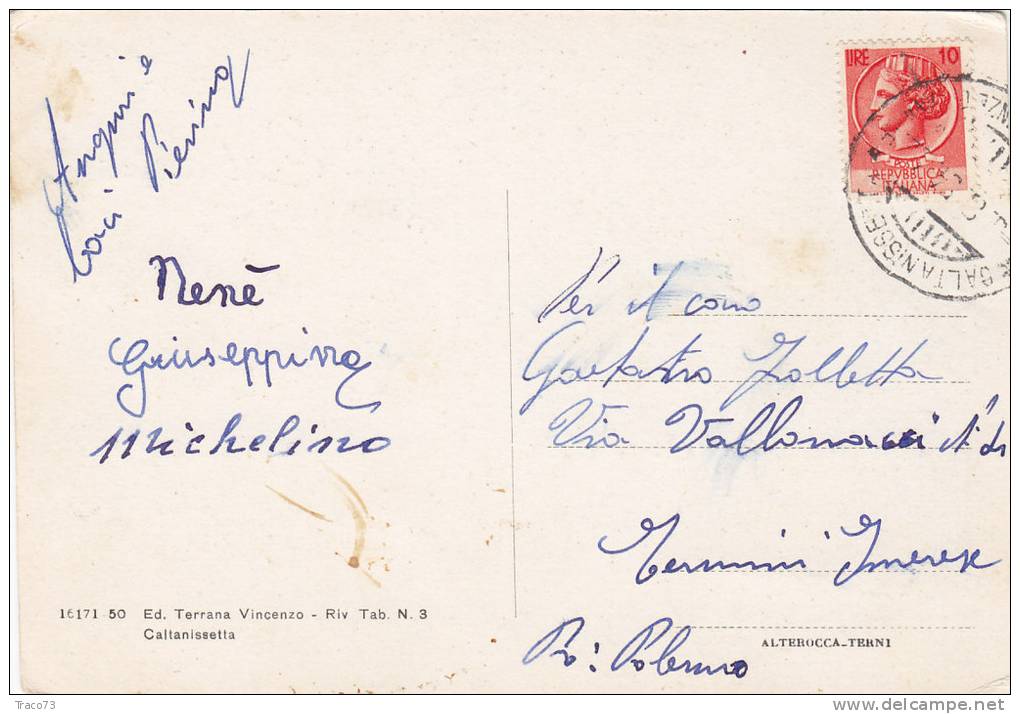 Auguri e
baci Pierina
Nenè
Giuseppina
Michelino
16171-50 Ed. Terrana Vincenzo - Riv Tab. N. 3
Caltanissetta
LIRE 10
POSTE
REPVBBLICA
ITALIANA
CALTANISSETTA
Per il caro
Gaetano Zolletta
Via Vallone
Termini Imerese
Pr: Palermo
ALTEROCCA-TERNI
Traco73
www.delcampe.net